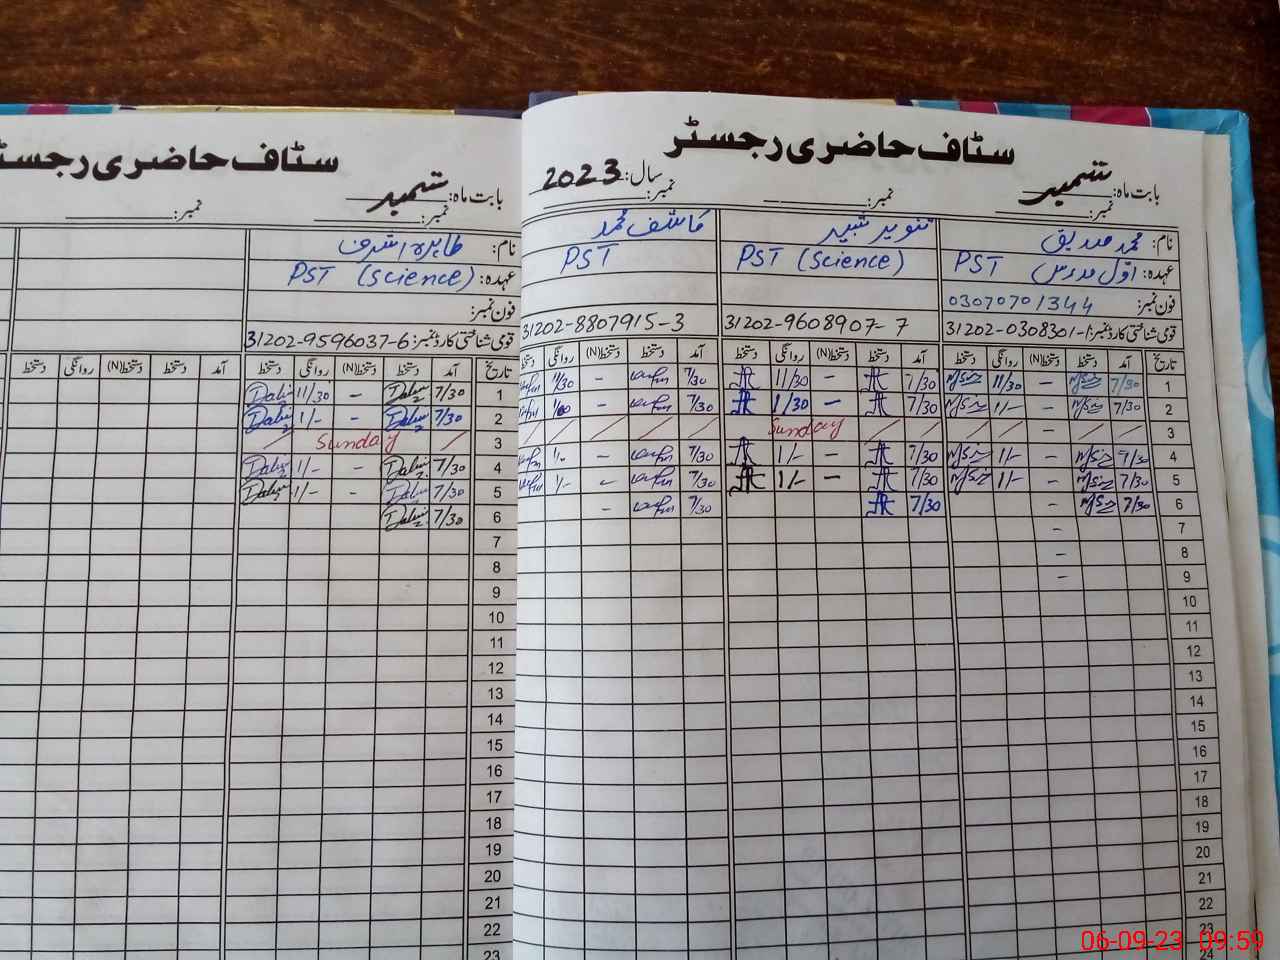 سٹاف حاضری رجسٹر
بابت ماہ: ستمبر سال: 2023
نمبر: نمبر: نمبر:
نام: محمد صدیق تنویر شبیر کاشف محمد
عہدہ: اوّل مدرس PST PST (Science) PST
فون نمبر: 03070701344
قومی شناختی کارڈ نمبر: 31202-0308301-1 31202-9608907-7 31202-8807915-3
تاریخ آمد دستخط دستخط(N) روانگی دستخط آمد دستخط دستخط(N) روانگی دستخط آمد دستخط دستخط(N) روانگی دستخط
1 7/30 - 11/30 7/30 - 11/30 7/30 - 11/30
2 7/30 - 1/- 7/30 - 1/30 7/30 -
3 Sunday
4 7/30 - 1/- 7/30 - 1/- 7/30 -
5 7/30 - 1/- 7/30 - 1/- 7/30 - 1/-
6 7/30 - 7/30 7/30 -
7 -
8 -
9 -
10
11
12
13
14
15
16
17
18
19
20
21
22
23
24
سٹاف حاضری رجسٹ
بابت ماہ: ستمبر
نمبر: نمبر:
نام: طاہرہ اشرف
عہدہ: PST (Science)
فون نمبر:
قومی شناختی کارڈ نمبر: 31202-9596037-6
تاریخ آمد دستخط دستخط(N) روانگی دستخط آمد دستخط دستخط(N) روانگی دستخط
1 7/30 - 11/30
2 7/30 - 1/-
3 Sunday
4 7/30 - 1/-
5 7/30 - 1/-
6 7/30
7
8
9
10
11
12
13
14
15
16
17
18
19
20
21
22
23
06-09-23 09:59